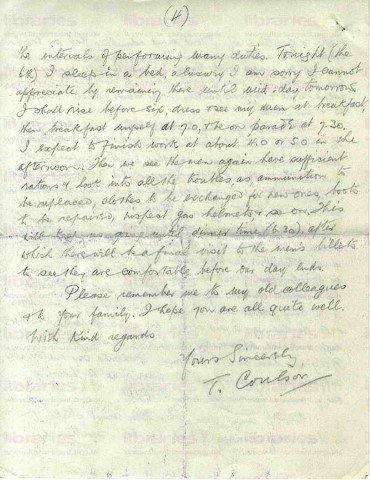 (4)
the intervals of performing many duties. Tonight (the
6th) I sleep in a bed, a luxury I am sorry I cannot
appreciate by remaining there until mid-day tomorrow
I shall rise before six, dress & see my men at breakfast
then breakfast myself at 7.0, & be on parade at 7.30.
I expect to finish work at about 4.0 or 5.0 in the
afternoon. Then we see the men again have sufficient
rations & look into all the troubles, as, ammunition to
be replaced, clothes to be exchanged for new ones, boots
to be repaired, inspect gas helmets & so on. This
will keep us going till dinner time (6.30), after
which there will be a final visit to the men's billets
to see they are comfortable before our day ends.
Please remember me to my old colleagues
& to your family. I hope you are all quite well.
With kind regards
Yours Sincerely
T. Coulson